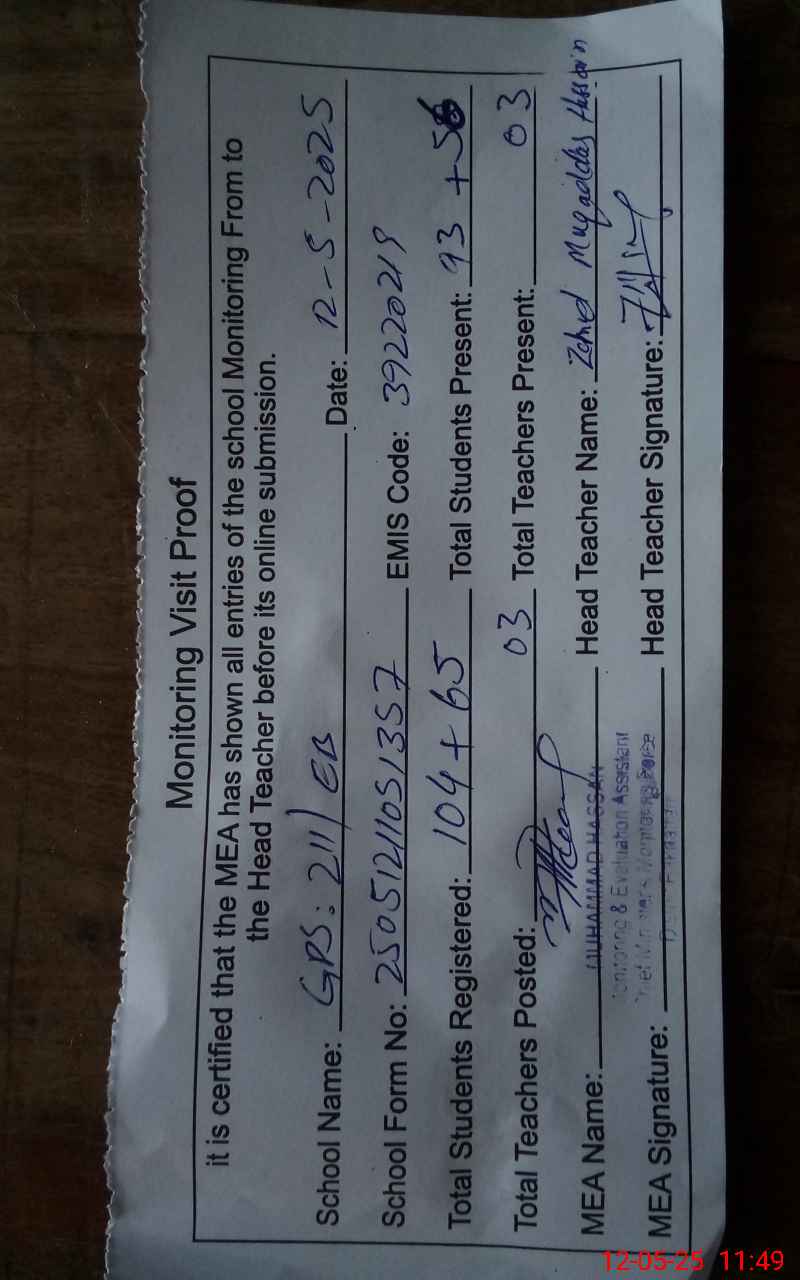 Monitoring Visit Proof
it is certified that the MEA has shown all entries of the school Monitoring From to
the Head Teacher before its online submission.
School Name: GPS: 211/EB Date: 12-5-2025
School Form No: 25051211051357 EMIS Code: 39220219
Total Students Registered: 104 + 65 Total Students Present: 93 + 56
Total Teachers Posted: 03 Total Teachers Present: 03
MEA Name: MUHAMMAD HASSAN Head Teacher Name: Zahid Muqaddas Hussain
Monitoring & Evaluation Assistant
Chief Minister's Monitoring Force
MEA Signature: Head Teacher Signature:
12-05-25 11:49